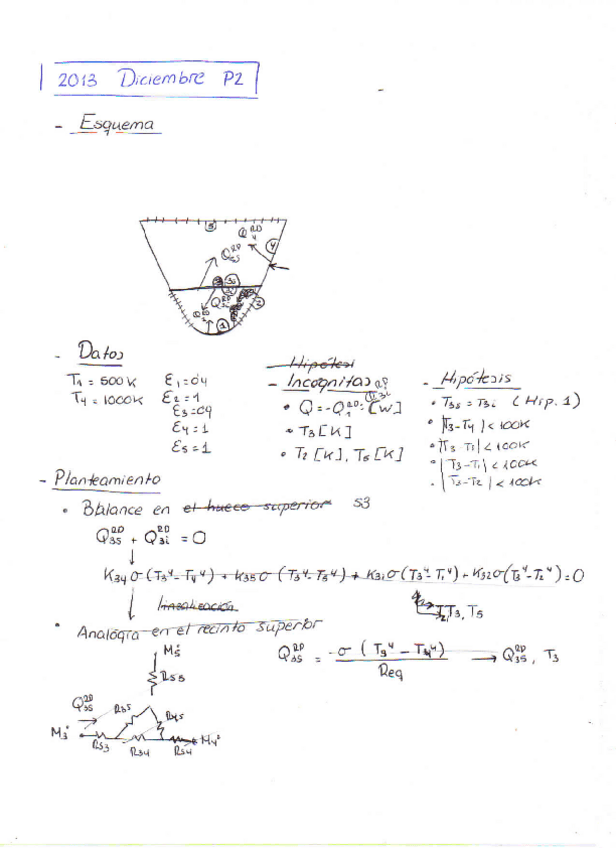 2013 Diciembre P2
- Esquema
5
Q 4 RD
4
Q 3S RD
3s
3i
Q 3i RD
2
1
- Datos
T1 = 500K ε1 = 0'4
T4 = 1000K ε2 = 1
ε3 = 0'9
ε4 = 1
ε5 = 1
Hipótesi
- Incognitas
• Q = -Q1 RD = [W]
• T3 [K]
• T2 [K], T5 [K]
- Hipótesis
• T3s = T3i (Hip. 1)
• |T3-T4| < 100K
• |T3-T5| < 100K
• |T3-T1| < 100K
• |T3-T2| < 100K
- Planteamiento
• Balance en el hueco superior S3
Q3S RD + Q3i RD = 0
K34 σ (T3⁴ - T4⁴) + K35 σ (T3⁴ - T5⁴) + K31 σ (T3⁴ - T1⁴) + K32 σ (T3⁴ - T2⁴) = 0
linealización
T3, T5
• Analogía en el recinto superior
Q3S RD = σ (T3⁴ - T4⁴) / Req → Q3S RD, T3
M5°
Rs5
Q3S RD
R35
R45
M3°
Rs3
R34
Rs4
M4°